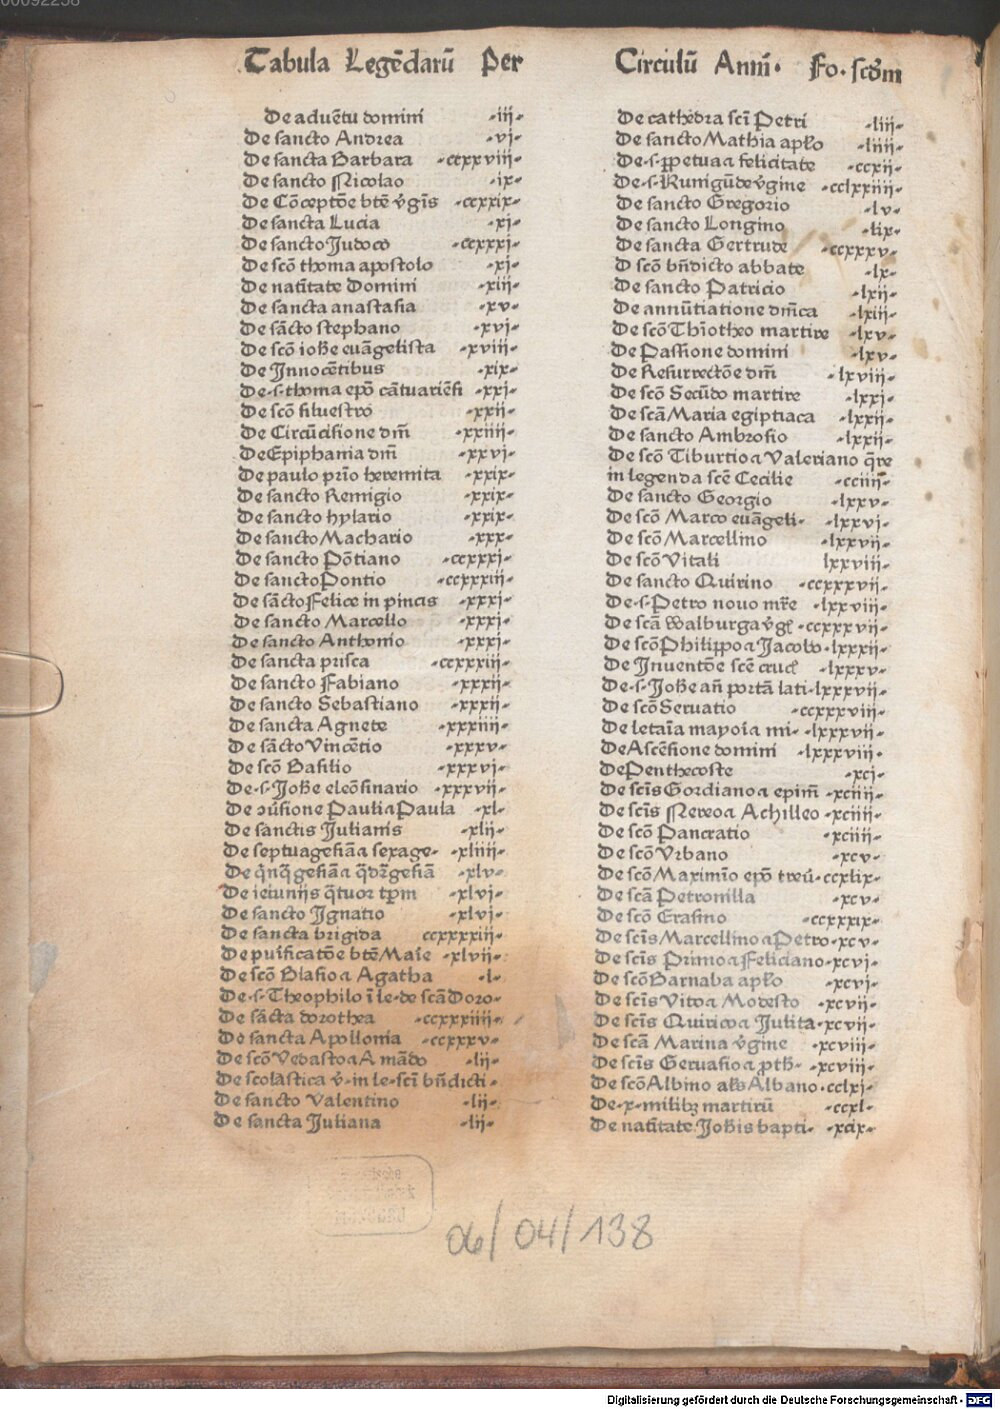 Tabula Legēdarū Per Circulū Anni· Fo·scdm
De aduētu domini ·iii·
De sancto Andrea ·vi·
De sancta Barbara ·ccxxviii·
De sancto Nicolao ·ix·
De Cōceptōe btē v̄gīs ·ccxxix·
De sancta Lucia ·xi·
De sancto Judoco ·ccxxxi·
De scō thoma apostolo ·xi·
De natītate Domini ·xiii·
De sancta anastasia ·xv·
De sācto stephano ·xvi·
De scō iohē euāgelista ·xviii·
De Innocētibus ·xix·
De·s·thoma epō cātuariēsi ·xxi·
De scō siluestro ·xxii·
De Circūcisione dm̄ ·xxiiii·
De Epiphania dm̄ ·xxvi·
De paulo prīo heremita ·xxix·
De sancto Remigio ·xxix·
De sancto hylario ·xxix·
De sancto Machario ·xxx·
De sancto Pōtiano ·ccxxxi·
De sancto Pontio ·ccxxxiii·
De sācto Felice in pincis ·xxxi·
De sancto Marcello ·xxxi·
De sancto Anthonio ·xxxi·
De sancta prisca ·ccxxxiii·
De sancto Fabiano ·xxxii·
De sancto Sebastiano ·xxxii·
De sancta Agnete ·xxxiiii·
De sācto Vincētio ·xxxv·
De scō Basilio ·xxxvi·
De·s·Johē eleōsinario ·xxxvii·
De ↄūsione Pauli a Paula ·xl·
De sanctis Julianis ·xlii·
De septuagesiā a sexage· ·xliiii·
De q̄nq̄gesiā a q̄drgesiā ·xlv·
De ieiuniis q̄tuor tpm ·xlvi·
De sancto Ignatio ·xlvi·
De sancta brigida ccxxxxiii·
De puīficatōe btē Maīe ·xlvii·
De scō Blasio a Agatha ·l·
De·s·Theophilo ī le·de scā Doro·
De sācta dorothea ·ccxxxiiii·
De sancta Apollonia ·ccxxxv·
De scō Vedasto a A mādo ·lii·
De scolastica v̄·in le·scī bn̄dicti·
De sancto Valentino ·lii·
De sancta Juliana ·lii·
De cathedra scī Petri ·liii·
De sancto Mathia aplo ·liiii·
De·s·ꝑpetua a felicitate ·ccxii·
De·s·Kunigūde v̄gine ·cclxxiiii·
De sancto Gregorio ·lv·
De sancto Longino ·lix·
De sancta Gertrude ·ccxxxv·
D scō bn̄dicto abbate ·lx·
De sancto Patricio ·lxii·
De annūtiatione dn̄ica ·lxiii·
De scō Thīotheo martire ·lxv·
De Passione domini ·lxv·
De Resurrectōe dm̄ ·lxviii·
De scō Secūdo martire ·lxxi·
De scā Maria egiptiaca ·lxxii·
De sancto Ambrosio ·lxxii·
De scō Tiburtio a Valeriano q̄re
in legenda scē Cecilie ·cciiii·
De sancto Georgio ·lxxv·
De scō Marco euāgeli· ·lxxvi·
De scō Marcellino ·lxxvii·
De scō Vitali lxxviii·
De sancto Quirino ·ccxxxvii·
De·s·Petro nouo mr̄e ·lxxviii·
De scā Walburga v̄g ·ccxxxvii·
De scō Philippo a Jacobo·lxxxii·
De Inuentōe scē cruc ·lxxxv·
De·s·Johē an̄ portā lati·lxxxvii·
De scō Seruatio ·ccxxxviii·
De letaīa mayoīa mi· ·lxxxvii·
De Ascēsione domini ·lxxxviii·
De Penthecoste ·xci·
De scīs Gordiano a epim̄ ·xciiii·
De scīs Nereo a Achilleo ·xciiii·
De scō Pancratio ·xciiii·
De scō Vrbano ·xcv·
De scō Maximīo epō treū·ccxlix·
De scā Petronilla ·xcv·
De scō Erasmo ·ccxxxix·
De scīs Marcellino a Petro·xcv·
De scīs Primo a Feliciano·xcvi·
De scō Barnaba aplo ·xcvi·
De scīs Vito a Modesto ·xcvii·
De scīs Quirico a Julita·xcvii·
De scā Marina v̄gine ·xcviii·
De scīs Geruasio a ꝓth· ·xcviii·
De scō Albino als Albano·cclxi·
De·x·milibꝫ martirū ·ccxl·
De natītate Johis bapti· ·xcix·
06/04/138
Digitalisierung gefördert durch die Deutsche Forschungsgemeinschaft - DFG